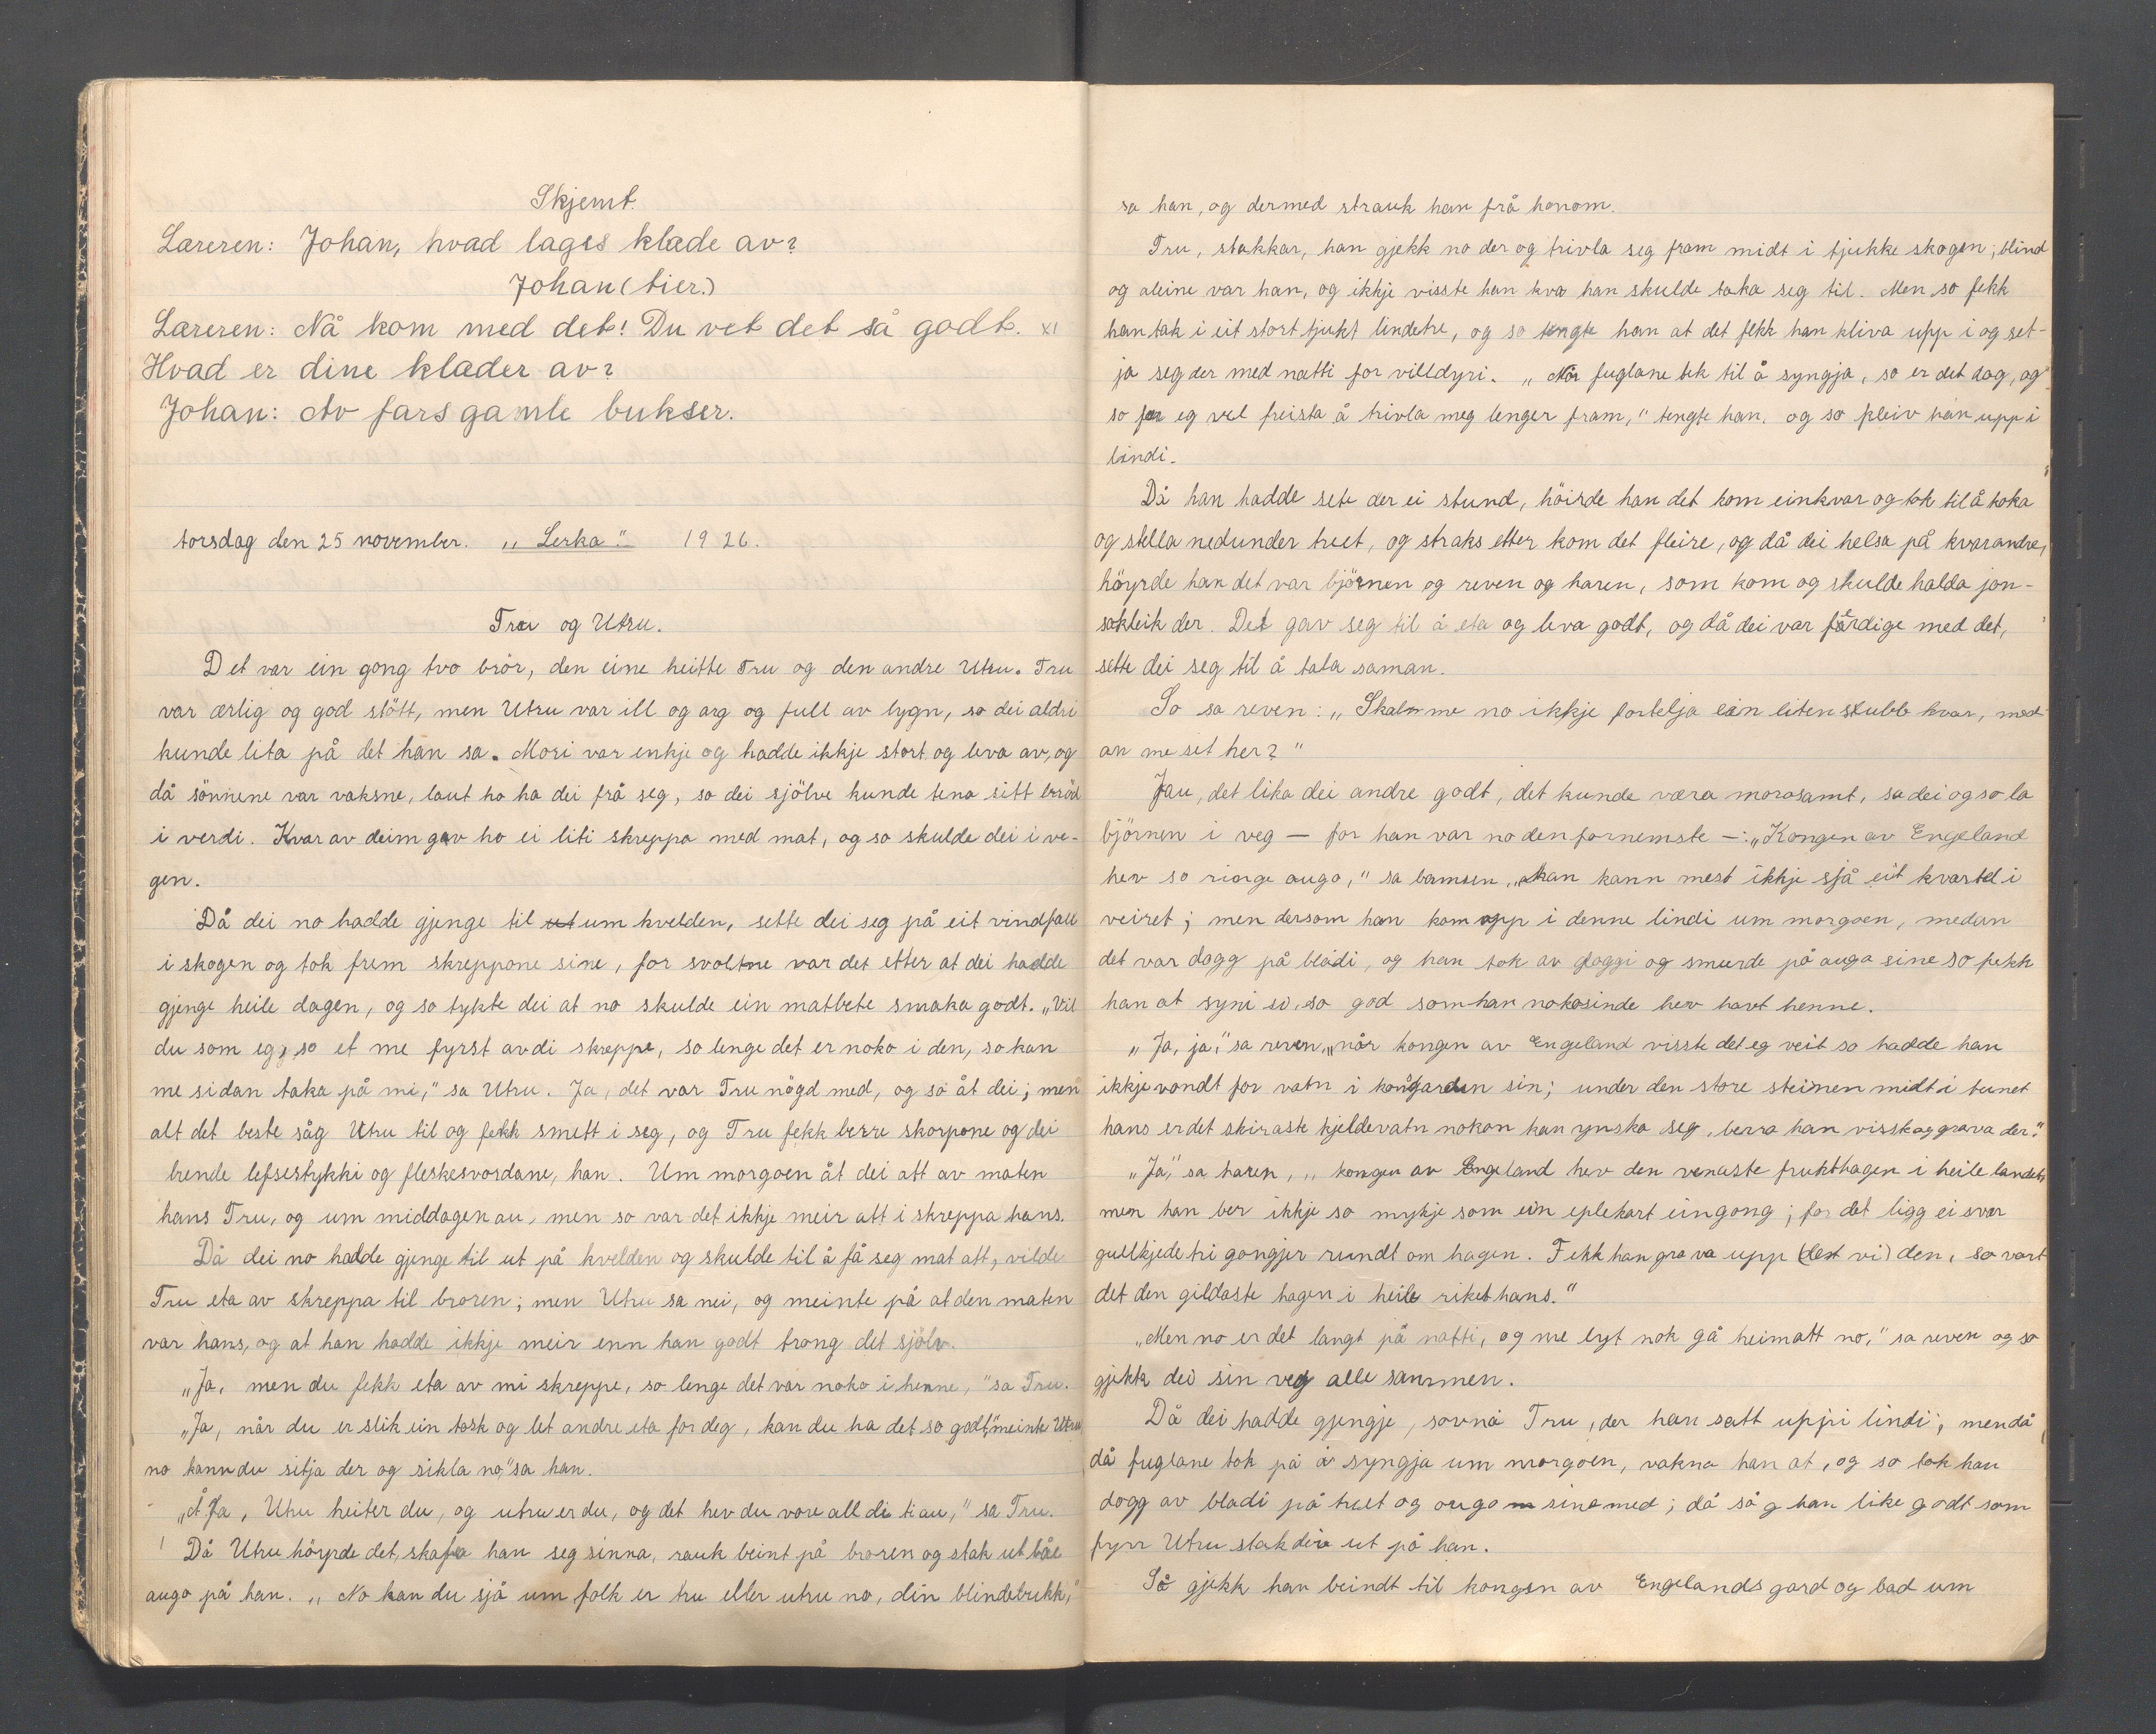 Skjemt.
Læreren: Johan, hvad lages klæde av?
Johan (tier.)
Læreren: Nå kom med det! Du vet det så godt. XI
Hvad er dine klæder av?
Johan: Av fars gamle bukser.
torsdag den 25 november. „Lerka" 1926.
Tru og Utru.
Det var ein gong tvo brör, den eine heitte Tru og den andre Utru. Tru
var ærlig og god stött, men Utru var ill og arg og full av lygn, so dei aldri
kunde lita på det han sa. Mori var enkje og hadde ikkje stort og leva av, og
då sönnene var vaksne, laut ho ha dei frå seg, so dei sjölve kunde tena sitt bröd
i verdi. Kvar av deim gav ho ei liti skreppa med mat, og so skulde dei i ve-
gen.
Då dei no hadde gjenge til ut um kvelden, sette dei seg på eit vindfall
i skogen og tok frem skreppone sine, for svoltne var det etter at dei hadde
gjenge heile dagen, og so tykte dei at no skulde ein matbete smaka godt. „Vil
du som eg, so et me fyrst av di skreppe, so lenge det er noko i den, so kan
me sidan taka på mi," sa Utru. Ja, det var Tru nögd med, og so åt dei; men
alt det beste såg Utru til og fekk smett i seg, og Tru fekk berre skorpone og dei
brende lefsestykki og fleskesvordane, han. Um morgoen åt dei att av maten
hans Tru, og um middagen au, men so var det ikkje meir att i skreppa hans.
Då dei no hadde gjenge til ut på kvelden og skulde til å få seg mat att, vilde
Tru eta av skreppa til broren; men Utru sa nei, og meinte på at den maten
var hans, og at han hadde ikkje meir enn han godt trong det sjölv.
„Ja, men du fekk eta av mi skreppe, so lenge det var noko i henne," sa Tru.
„Ja, når du er slik ein tosk og let andre eta for deg, kan du ha det so godt," meinte Utru,
no kann du sitja der og sikla no," sa han.
„Å Ja, Utru heiter du, og utru er du, og det hev du vore all di ti au," sa Tru.
Då Utru höyrde det, skapa han seg sinna, rauk beint på broren og stak ut båe
augo på han. „No kan du sjå um folk er tru eller utru no, din blindebukk,"
sa han, og dermed strauk han frå honom.
Tru, stakkar, han gjekk no der og trivla seg fram midt i tjukke skogen; blind
og aleine var han, og ikkje visste han kva han skulde taka seg til. Men so fekk
han tak i eit stort tjukt lindetre, og so tengte han at det fekk han kliva upp i og set-
ja seg der med natti for villdyri. „Når fuglane tek til å syngja, so er det dag, og
so får eg vel freista å trivla meg lenger fram," tengte han, og so kleiv han upp i
lindi.
Då han hadde sete der ei stund, höirde han det kom einkvar og tok til å toka
og stella nedunder treet, og straks etter kom det fleire, og då dei helsa på kvarandre,
höyrde han det var björnen og reven og haren, som kom og skulde halda jon-
sokleik der. Det gav seg til å eta og leva godt, og då dei var færdige med det,
sette dei seg til å tala saman.
So sa reven: „Skal me no ikkje fortelja ein liten stubb kvar, med-
an me sit her?"
Jau, det lika dei andre godt, det kunde væra morosamt, sa dei og so la
björnen i veg — for han var no den fornemste —: „Kongen av Engeland
hev so ringe augo," sa bamsen, „han kann mest ikkje sjå eit kvartel i
veiret; men dersom han kom opp i denne lindi um morgoen, medan
det var dogg på bladi, og han tok av doggi og smurde på auga sine so fekk
han at syni si, so god som han nokosinde hev havt henne.
„Ja, ja," sa reven, „når kongen av Engeland visste det eg veit so hadde han
ikkje vondt for vatn i kongsgarden sin; under den store steinen midt i tunet
hans er det skiraste kjeldevatn nokon kan ynska seg, berra han visste og grava der."
„Ja," sa haren, „kongen av Engeland hev den venaste frukthagen i heile landet,
men han ber ikkje so mykje som ein eplekart eingong; for det ligg ei svær
gullkjede tri gongjer rundt om hagen. Fekk han grava upp den, so vart
det den gildaste hagen i heile riket hans."
„Men no er det langt på natti, og me lyt nok gå heimatt no," sa reven og so
gjekk dei sin veg alle sammen.
Då dei hadde gjengje, sovna Tru, der han satt uppi lindi, men då
då fuglane tok på å syngja um morgoen, vakna han at, og so tok han
dogg av bladi på treet og augo sine med; då såg han like godt som
fyrr Utru stak deira ut på han.
Så gjekk han beindt til kongen av Engelands gard og bad um